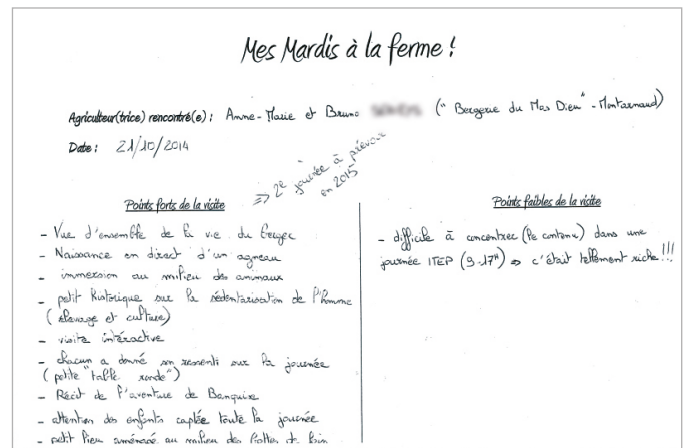 Mes Mardis à la ferme !
Agriculteur(trice) rencontré(e) : Anne-Marie et Bruno ("Bergerie du Mas Dieu" - Montarnaud)
Date : 21/10/2014
=> 2e journée à prévoir
en 2015
Points forts de la visite
- Vue d'ensemble de la vie du berger
- Naissance en direct d'un agneau
- immersion au milieu des animaux
- petit historique sur la sédentarisation de l'homme
( élevage et culture)
- visite intéractive
- chacun a donné son ressenti sur la journée
( petite "table ronde")
- Récit de l'aventure de Banquise
- attention des enfants captée toute la journée
- petit lieu aménagé au milieu des de foin
Points faibles de la visite
- difficile à concentrer (le contenu) dans une
journée ITEP (9-17H) => c'était tellement riche !!!